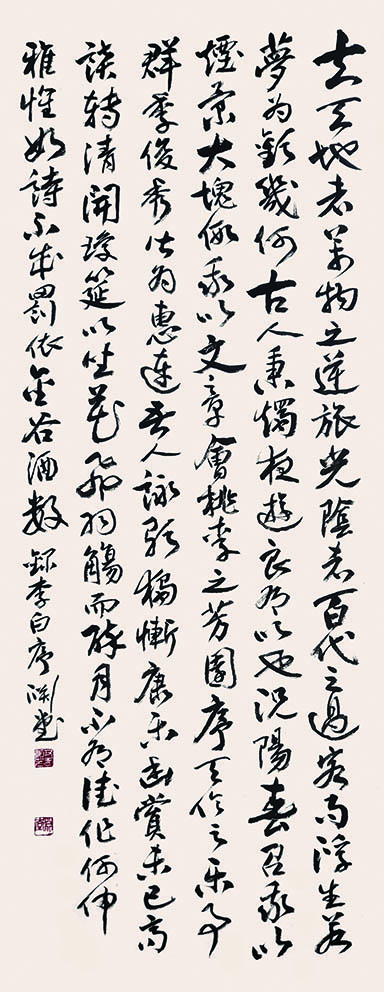 夫天地者萬物之逆旅光陰者百代之過客而浮生若
夢為歡幾何古人秉燭夜遊良有以也況陽春召我以
煙景大塊假我以文章會桃李之芳園序天倫之樂事
群季俊秀皆為惠連吾人詠歌獨慚康樂幽賞未已高
談轉清開瓊筵以坐花飛羽觴而醉月不有佳作何伸
雅懷如詩不成罰依金谷酒數 錄李白序